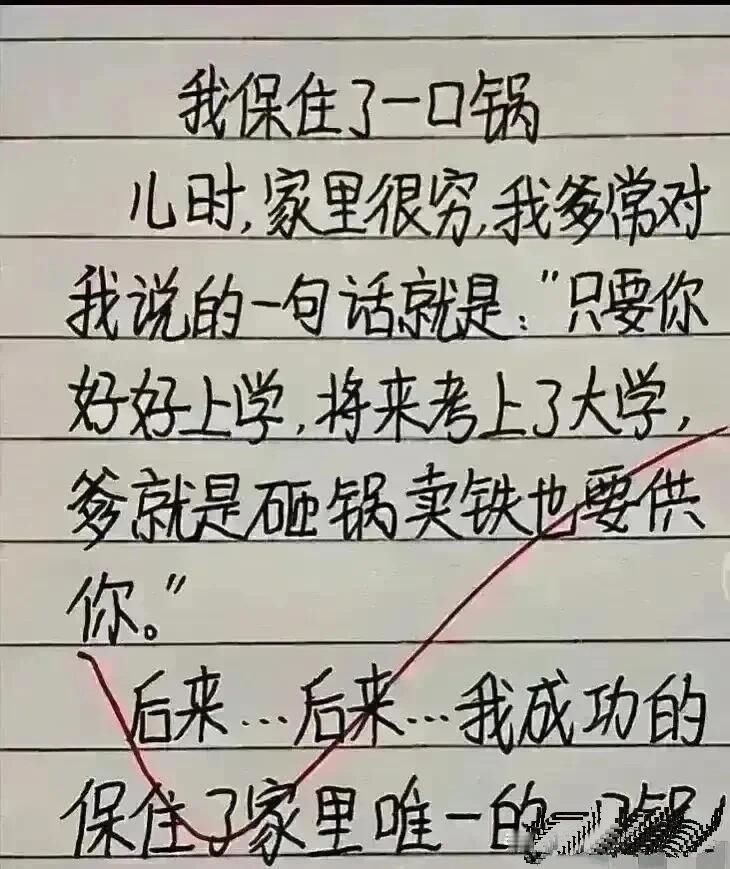 我保住了一口锅
儿时,家里很穷,我爹常对
我说的一句话就是:"只要你
好好上学,将来考上了大学,
爹就是砸锅卖铁也要供
你。"
后来…后来…我成功的
保住了家里唯一的一口锅